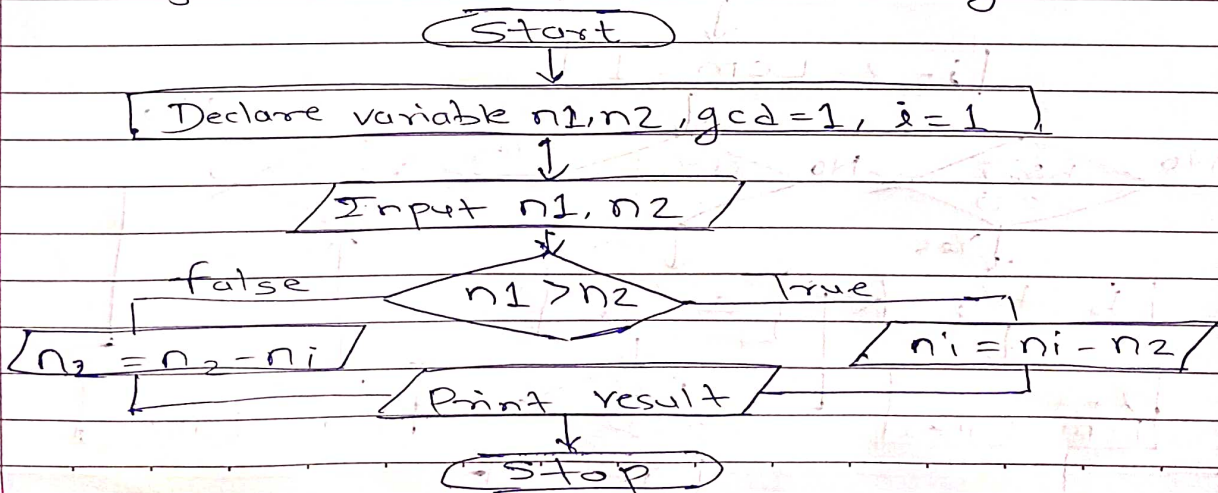 Start
Declare variable n1, n2, gcd=1, i=1
Input n1, n2
false n1 > n2 True
n2 = n2 - ni
ni = ni - n2
Print result
Stop